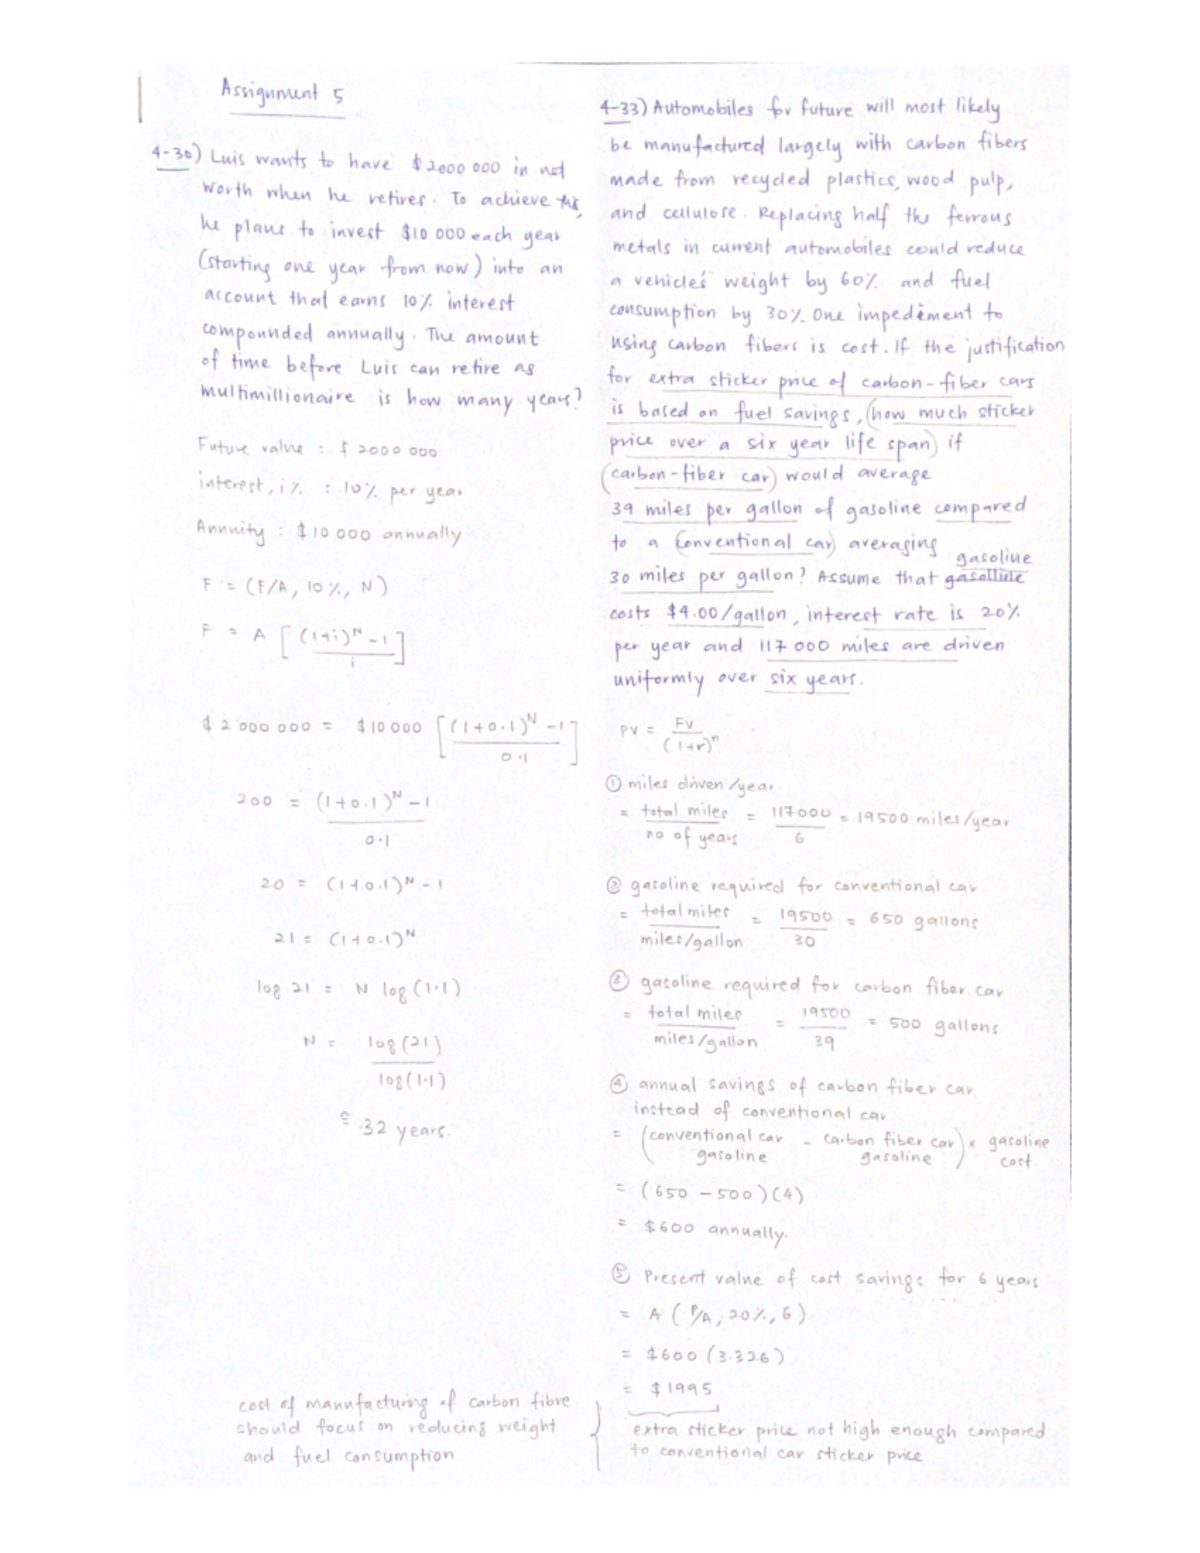 Assignment 5
4-30) Luis wants to have $2000 000 in net
worth when he retires. To achieve this,
he plans to invest $10 000 each year
(starting one year from now) into an
account that earns 10% interest
compounded annually. The amount
of time before Luis can retire as
multimillionaire is how many years?
Future value : $ 2000 000
interest, i% : 10% per year
Annuity : $10 000 annually
F = (F/A, 10%, N)
F = A [ (1+i)^N -1 ]
i
$ 2 000 000 = $10 000 [ (1+0.1)^N -1 ]
0.1
200 = (1+0.1)^N -1
0.1
20 = (1+0.1)^N -1
21 = (1+0.1)^N
log 21 = N log (1.1)
N = log (21)
log (1.1)
≅ 32 years.
cost of manufacturing of carbon fibre
should focus on reducing weight
and fuel consumption
4-33) Automobiles for future will most likely
be manufactured largely with carbon fibers
made from recycled plastics, wood pulp,
and cellulose. Replacing half the ferrous
metals in current automobiles could reduce
a vehicle's weight by 60% and fuel
consumption by 30%. One impediment to
using carbon fibers is cost. If the justification
for extra sticker price of carbon-fiber cars
is based on fuel savings, (how much sticker
price over a six year life span) if
(carbon-fiber car) would average
39 miles per gallon of gasoline compared
to a (conventional car) averaging
gasoline
30 miles per gallon? Assume that
costs $4.00/gallon, interest rate is 20%
per year and 117 000 miles are driven
uniformly over six years.
PV = FV
(1+r)^n
① miles driven /year
= total miles = 117000 = 19500 miles/year
no of years 6
② gasoline required for conventional car
= total miles = 19500 = 650 gallons
miles/gallon 30
③ gasoline required for carbon fiber car
= total miles = 19500 = 500 gallons
miles/gallon 39
④ annual savings of carbon fiber car
instead of conventional car
= (conventional car - carbon fiber car) x gasoline
gasoline gasoline cost
= (650 - 500)(4)
= $600 annually.
⑤ Present value of cost savings for 6 years
= A (P/A, 20%, 6)
= $600 (3.326)
= $1995
extra sticker price not high enough compared
to conventional car sticker price